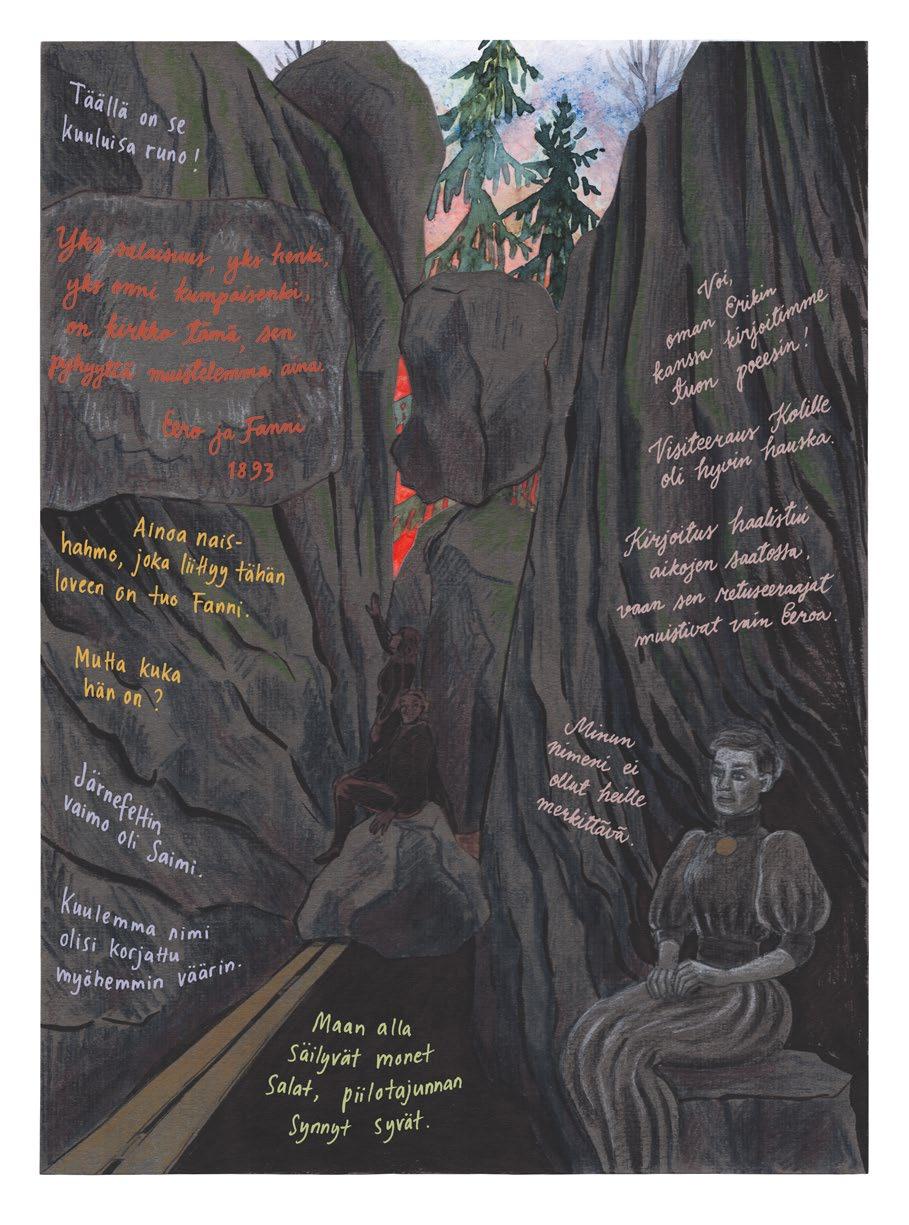 Täällä on se
kuuluisa runo!
Yks salaisuus, yks henki,
yks onni kumpaisenki,
on kirkko tämä, sen
pyhyyttä muistelemma aina.
Eero ja Fanni
1893
Ainoa nais-
hahmo, joka liittyy tähän
loveen on tuo Fanni.
Mutta kuka
hän on?
Järnefeltin
vaimo oli Saimi.
Kuulemma nimi
olisi korjattu
myöhemmin väärin.
Voi,
oman Erikin
kanssa kirjoitimme
tuon poeesin!
Visiteeraus Kolille
oli hyvin hauska.
Kirjoitus haalistui
aikojen saatossa,
vaan sen retuseeraajat
muistivat vain Eeroa.
Minun
nimeni ei
ollut heille
merkittävä.
Maan alla
Säilyvät monet
Salat, piilotajunnan
Synnyt syvät.